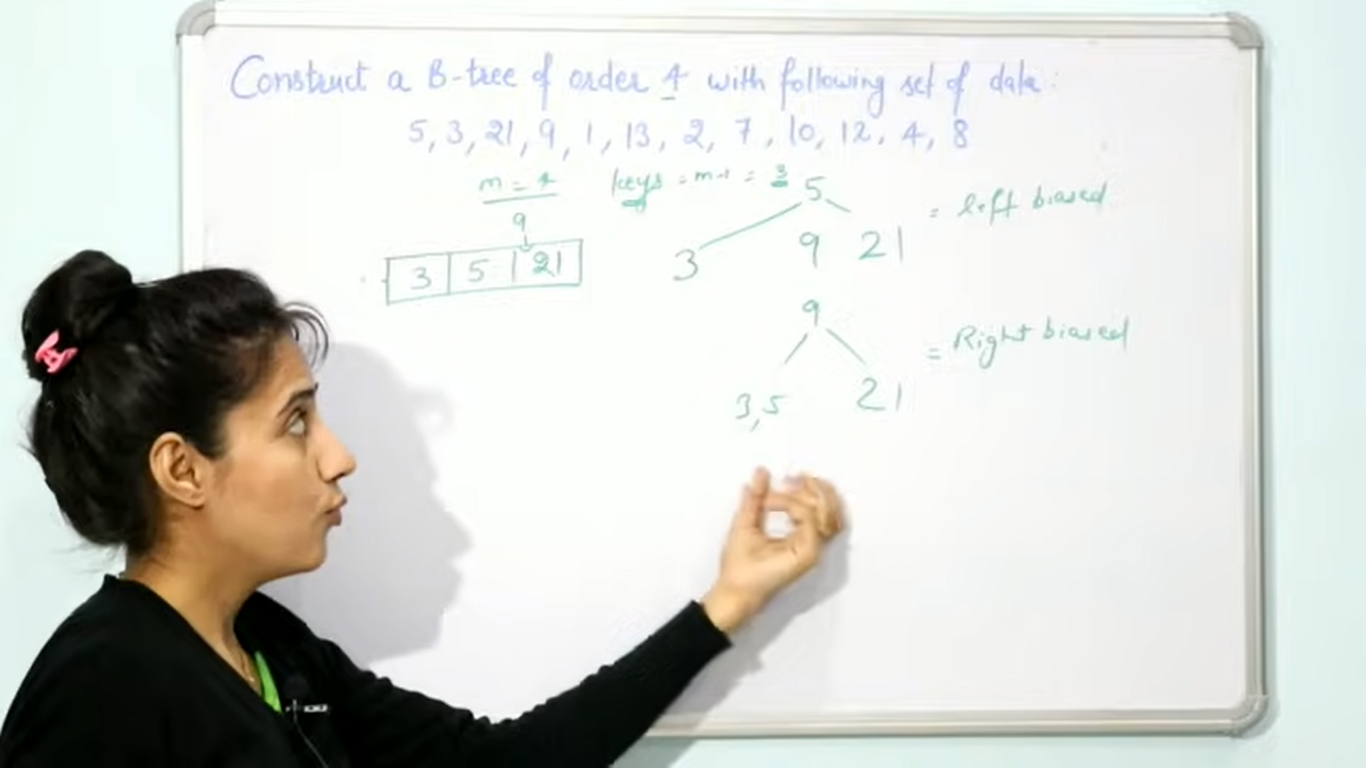 Construct a B-tree of order 4 with following set of data:
5, 3, 21, 9, 1, 13, 2, 7, 10, 12, 4, 8
m = 4 keys = m-1 = 3
9
3 5 21
5
3 9 21 = left biased
9
3,5 21 = Right biased